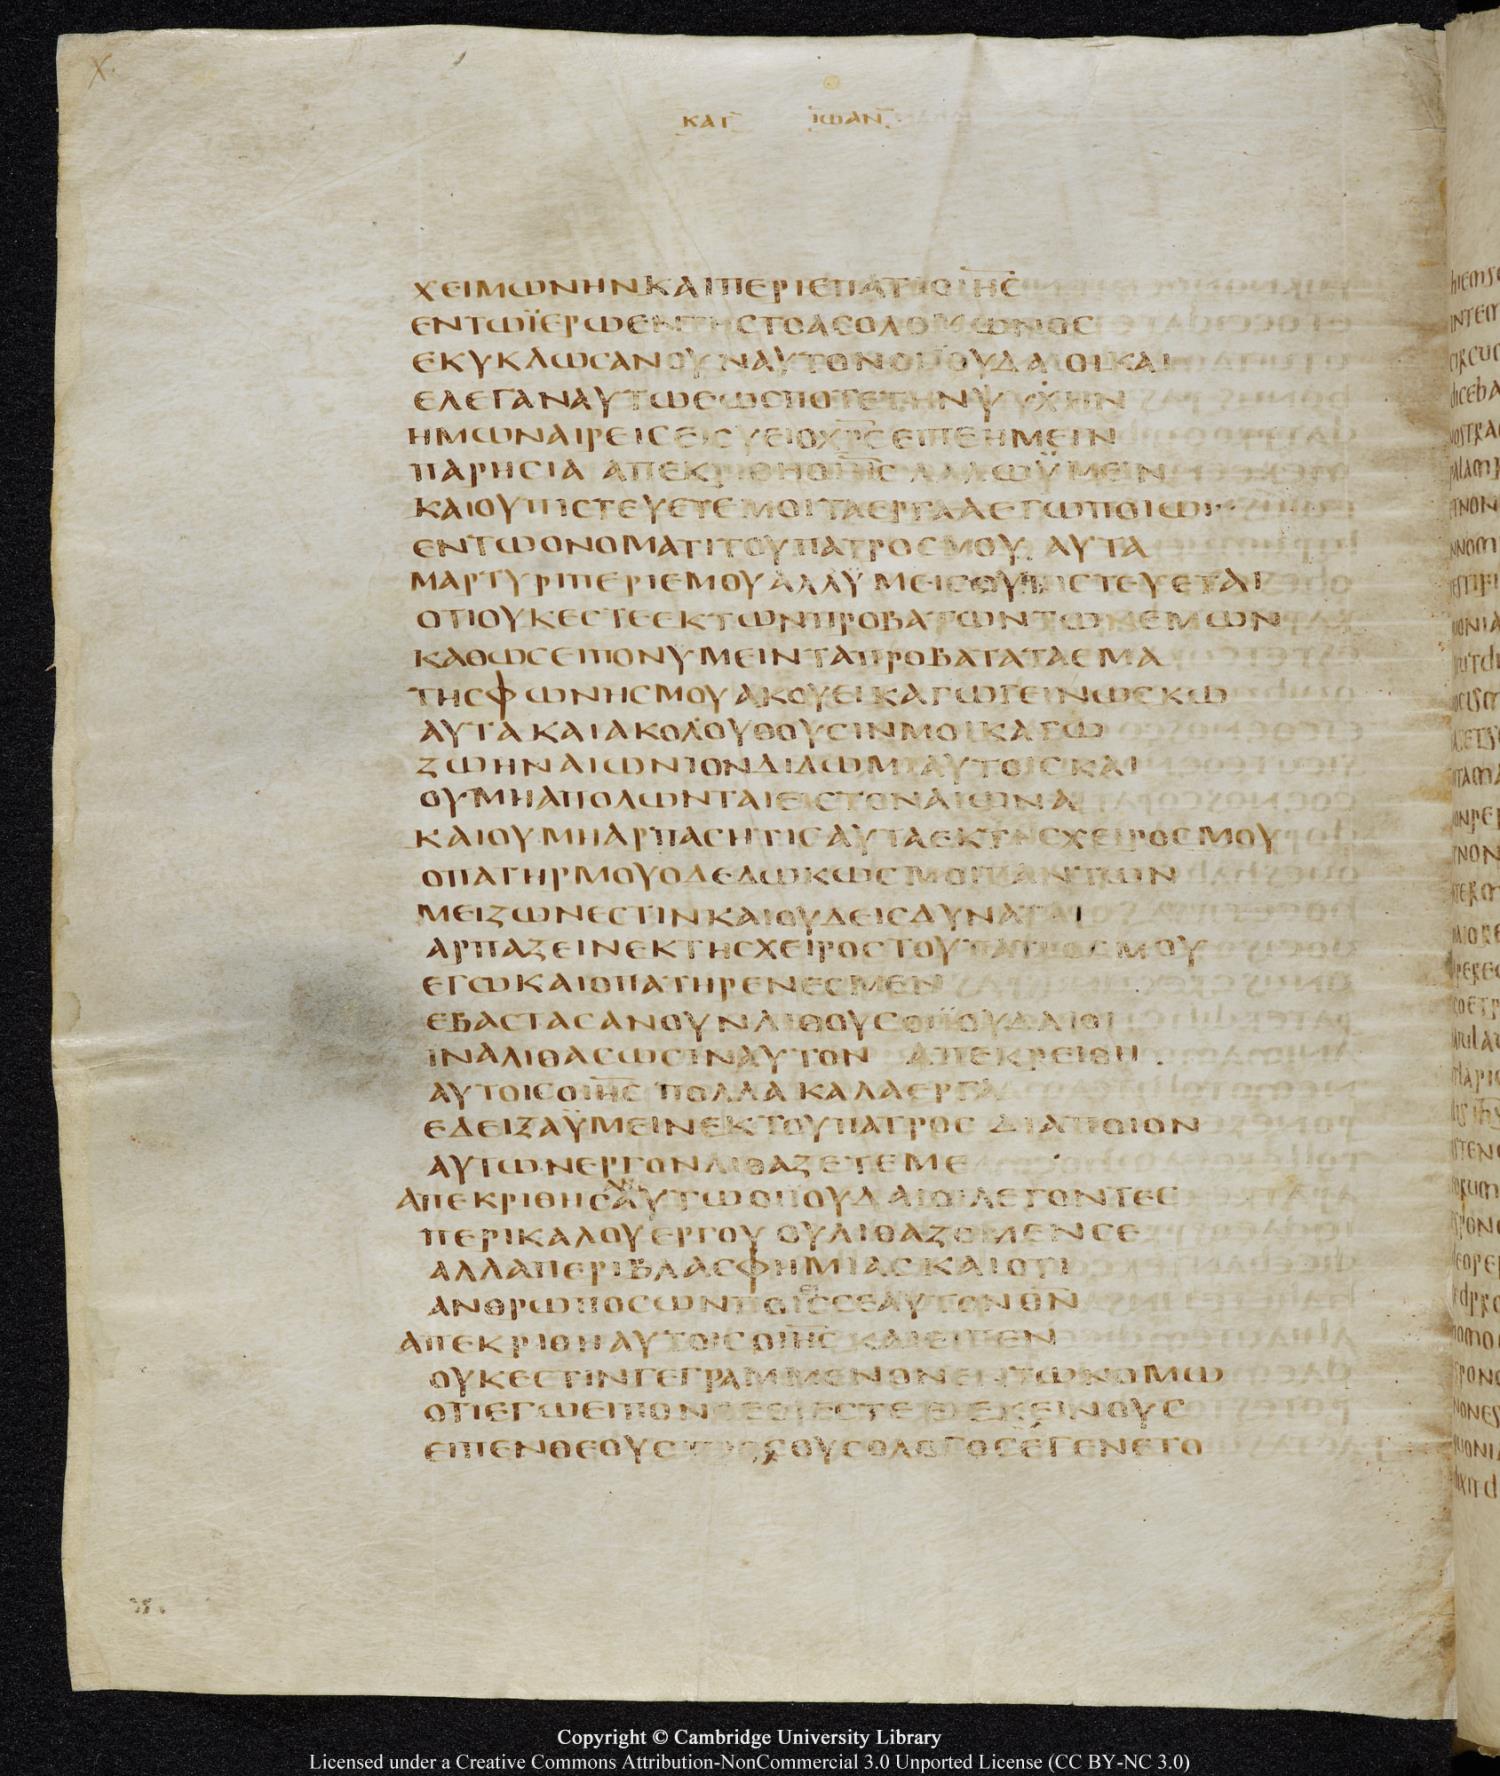 ΚΑΤ ΙΩΑΝ
ΧΕΙΜΩΝΗΝΚΑΙΠΕΡΙΕΠΑΤΙΟΙΗΣ
ΕΝΤΩΪΕΡΩΕΝΤΗΣΤΟΑΣΟΛΟΜΩΝΟΣ
ΕΚΥΚΛΩΣΑΝΟΥΝΑΥΤΟΝΟΙΪΟΥΔΑΙΟΙΚΑΙ
ΕΛΕΓΑΝΑΥΤΩΕΩΣΠΟΤΕΤΗΝΨΥΧΗΝ
ΗΜΩΝΑΙΡΕΙΣΕΙΣΥΕΙΟΧΡΣΕΙΠΕΗΜΕΙΝ
ΠΑΡΗΣΙΑ ΑΠΕΚΡΙΘΗΟΙΗΣ ΛΑΛΩΫΜΕΙΝ
ΚΑΙΟΥΠΙΣΤΕΥΕΤΕΜΟΙΤΑΕΡΓΑΑΕΓΩΠΟΙΩ
ΕΝΤΩΟΝΟΜΑΤΙΤΟΥΠΑΤΡΟΣΜΟΥ ΑΥΤΑ
ΜΑΡΤΥΡΙΠΕΡΙΕΜΟΥΑΛΛΫΜΕΙΣΟΥΠΙΣΤΕΥΕΤΑΙ
ΟΤΙΟΥΚΕΣΤΕΕΚΤΩΝΠΡΟΒΑΤΩΝΤΩΝΕΜΩΝ
ΚΑΘΩΣΕΙΠΟΝΥΜΕΙΝΤΑΠΡΟΒΑΤΑΤΑΕΜΑ
ΤΗΣΦΩΝΗΣΜΟΥΑΚΟΥΕΙΚΑΓΩΓΕΙΝΩΣΚΩ
ΑΥΤΑΚΑΙΑΚΟΛΟΥΘΟΥΣΙΝΜΟΙΚΑΓΩ
ΖΩΗΝΑΙΩΝΙΟΝΔΙΔΩΜΙΑΥΤΟΙΣΚΑΙ
ΟΥΜΗΑΠΟΛΩΝΤΑΙΕΙΣΤΟΝΑΙΩΝΑ
ΚΑΙΟΥΜΗΑΡΠΑΣΗΤΙΣΑΥΤΑΕΚΤΗΣΧΕΙΡΟΣΜΟΥ
ΟΠΑΤΗΡΜΟΥΟΔΕΔΩΚΩΣΜΟΙΠΑΝΤΩΝ
ΜΕΙΖΩΝΕΣΤΙΝΚΑΙΟΥΔΕΙΣΔΥΝΑΤΑΙ
ΑΡΠΑΖΕΙΝΕΚΤΗΣΧΕΙΡΟΣΤΟΥΠΑΤΡΟΣΜΟΥ
ΕΓΩΚΑΙΟΠΑΤΗΡΕΝΕΣΜΕΝ
ΕΒΑΣΤΑΣΑΝΟΥΝΛΙΘΟΥΣΟΙΪΟΥΔΑΙΟΙ
ΙΝΑΛΙΘΑΣΩΣΙΝΑΥΤΟΝ ΑΠΕΚΡΕΙΘΗ
ΑΥΤΟΙΣΟΙΗΣ ΠΟΛΛΑ ΚΑΛΑΕΡΓΑ
ΕΔΕΙΞΑΫΜΕΙΝΕΚΤΟΥΠΑΤΡΟΣ ΔΙΑΠΟΙΟΝ
ΑΥΤΩΝΕΡΓΟΝΛΙΘΑΖΕΤΕΜΕ
ΑΠΕΚΡΙΘΗΣΑΝΑΥΤΩΟΙΪΟΥΔΑΙΟΙΛΕΓΟΝΤΕΣ
ΠΕΡΙΚΑΛΟΥΕΡΓΟΥ ΟΥΛΙΘΑΖΟΜΕΝΣΕ
ΑΛΛΑΠΕΡΙΒΛΑΣΦΗΜΙΑΣΚΑΙΟΤΙ
ΑΝΘΡΩΠΟΣΩΝΠΟΙΕΙΣΣΕΑΥΤΟΝΘΝ
ΑΠΕΚΡΙΘΗΑΥΤΟΙΣΟΙΗΣ ΚΑΙΕΙΠΕΝ
ΟΥΚΕΣΤΙΝΓΕΓΡΑΜΜΕΝΟΝΕΝΤΩΝΟΜΩ
ΟΤΙΕΓΩΕΙΠΟΝΘΕΟΙΕΣΤΕ ΕΙΕΚΕΙΝΟΥΣ
ΕΙΠΕΝΘΕΟΥΣΠΡΟΣΟΥΣΟΛΟΓΟΣΕΓΕΝΕΤΟ
Copyright © Cambridge University Library
Licensed under a Creative Commons Attribution-NonCommercial 3.0 Unported License (CC BY-NC 3.0)